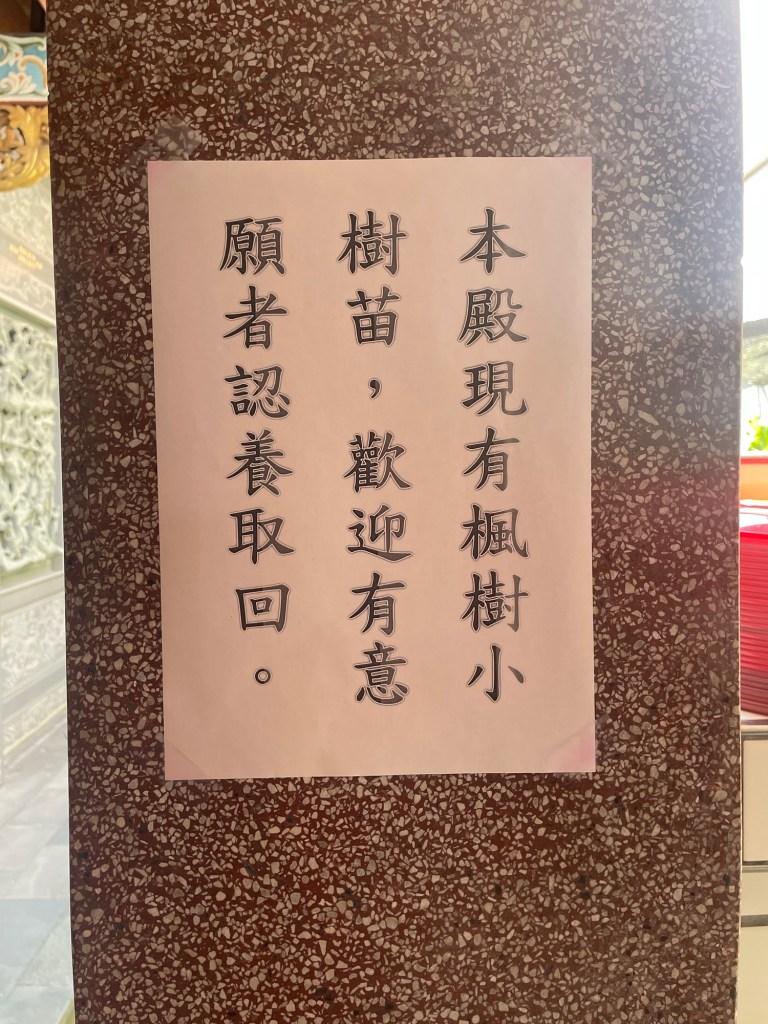 本殿現有楓樹小
樹苗，歡迎有意
願者認養取回。